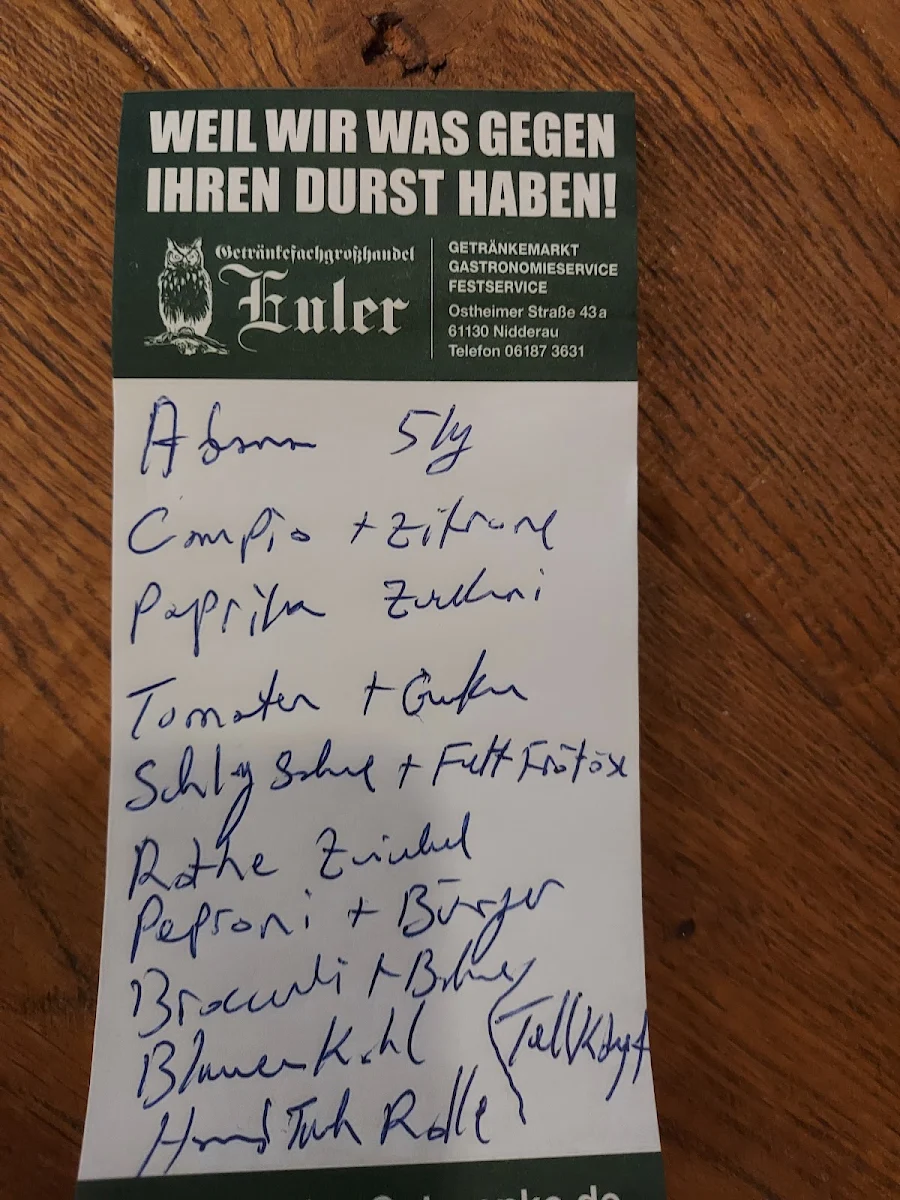 WEIL WIR WAS GEGEN
IHREN DURST HABEN!
Getränkefachgroßhandel
Euler
GETRÄNKEMARKT
GASTRONOMIESERVICE
FESTSERVICE
Ostheimer Straße 43a
61130 Nidderau
Telefon 06187 3631
+ Zitrone
Paprika Zuckini
Tomaten + Gurken
Schlag Sahne + Fett
Rothe Zwiebel
Peproni + Bürger
Broccoli + Bohnen
Blumen Kohl
Hand Tuch Rolle